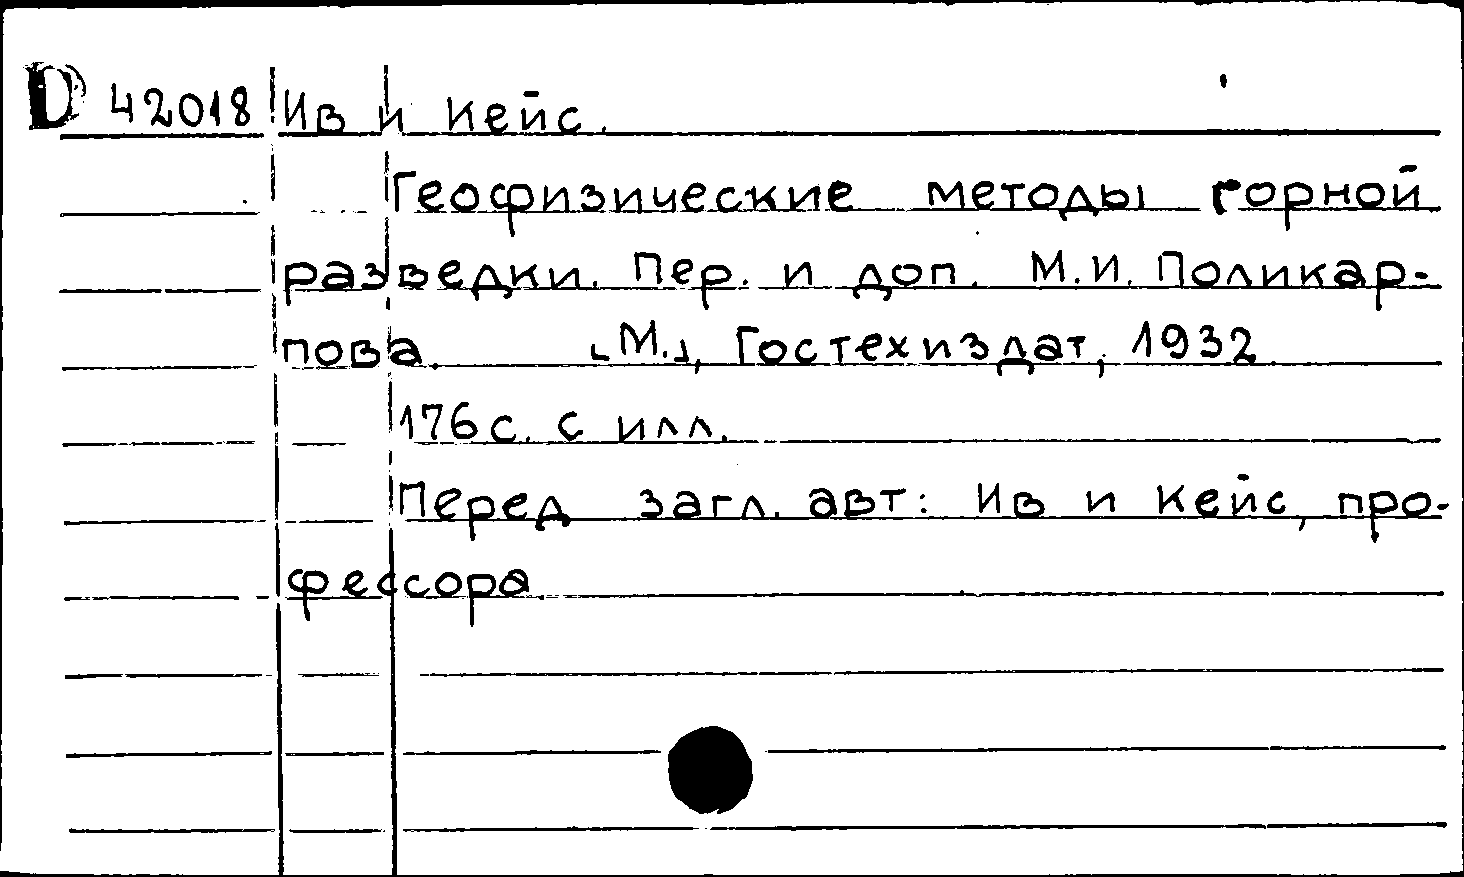 D 42018 Ив и Кейс.
Геофизические методы горной
разведки. Пер. и доп. М.И. Поликар-
пова. [М.], Гостехиздат, 1932.
176 с. с илл.
Перед загл. авт: Ив и Кейс, про-
фессора.